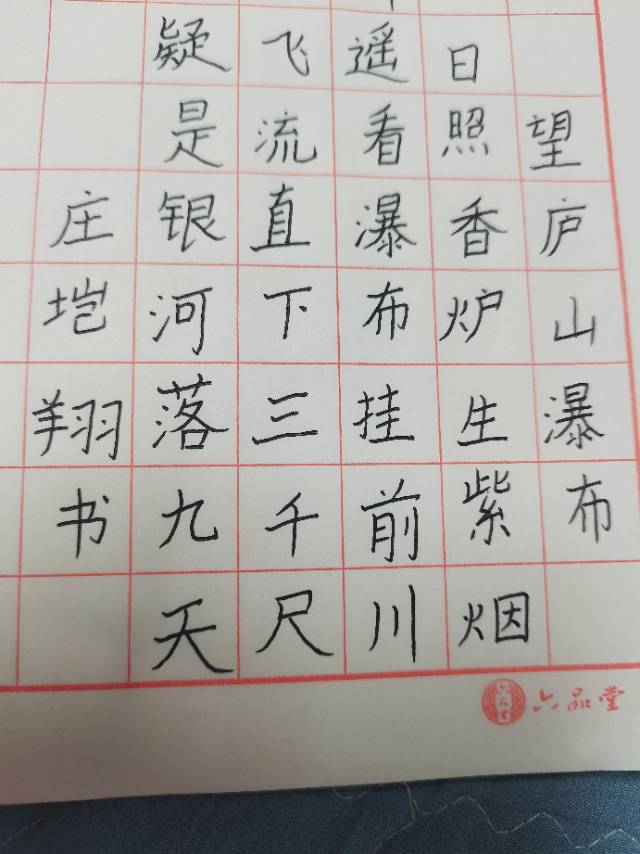 望庐山瀑布
日照香炉生紫烟
遥看瀑布挂前川
飞流直下三千尺
疑是银河落九天
庄垲翔书
六品堂